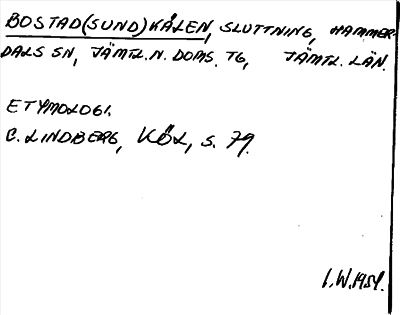 BOSTAD(SUND)KÅLEN, SLUTTNING, HAMMER-
DALS SN, JÄMTL.N. DOMS. TG, JÄMTL. LÄN.
ETYMOLOGI.
C. LINDBERG, KÖL, S. 79.
I.W.1954.